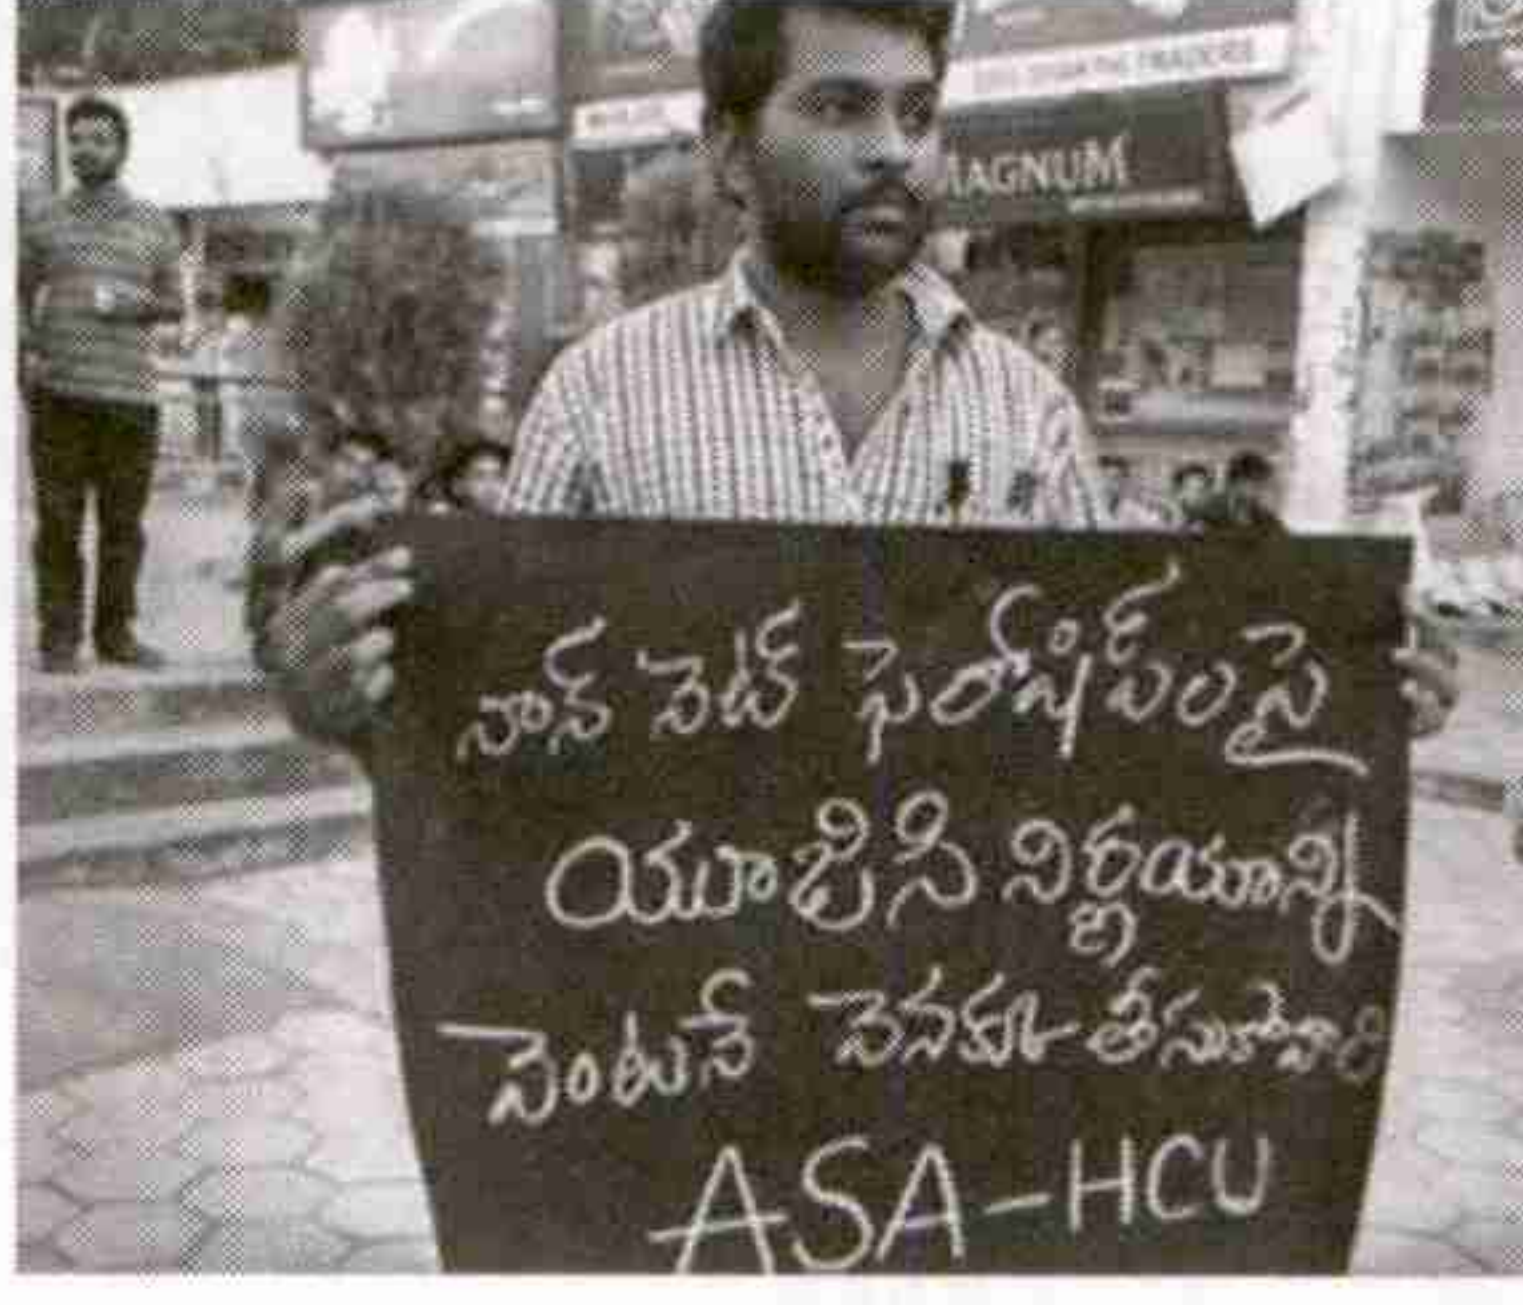 TRADERS
MAGNUM
నాన్ నెట్ ఫెలోషిప్‌లపై
యూజిసి నిర్ణయాన్ని
వెంటనే వెనక్కు తీసుకోవాలి
ASA-HCU